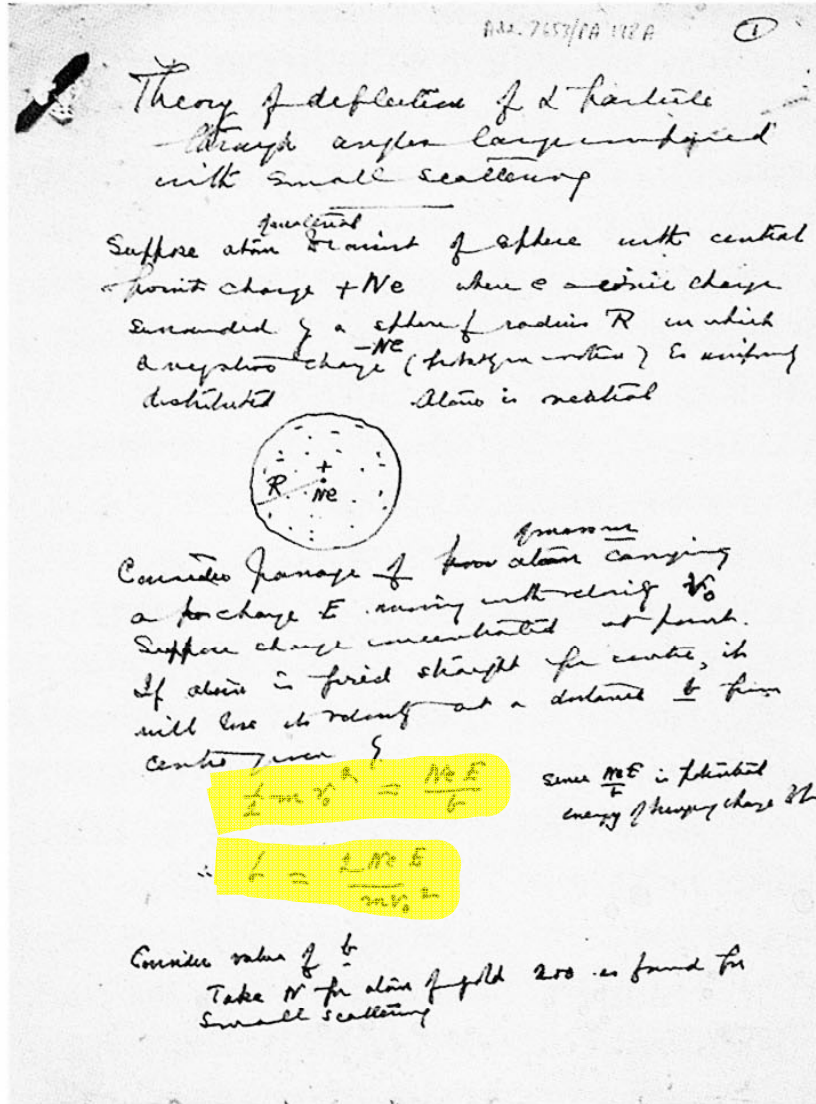 Add. 7653/PA 198A
1
Theory of deflection of α particle
through angles large compared
with small scattering
of material
Suppose atom to consist of sphere with central
point charge +Ne where e = ionic charge
surrounded by a sphere of radius R in which
-Ne
a negative charge ( ) is uniformly
distributed Atom is neutral
+
R Ne
of mass m
Consider passage of atom carrying
a charge E moving with velocity v₀
Suppose charge concentrated at point.
If atom is fired straight for centre, it
will lose its velocity at a distance b from
centre given by
½ m v₀² = NeE/b
since NeE/b is potential
energy of charge
∴ b = 2NeE/mv₀²
Consider value of b
Take N for atom of gold 200 as found for
small scattering